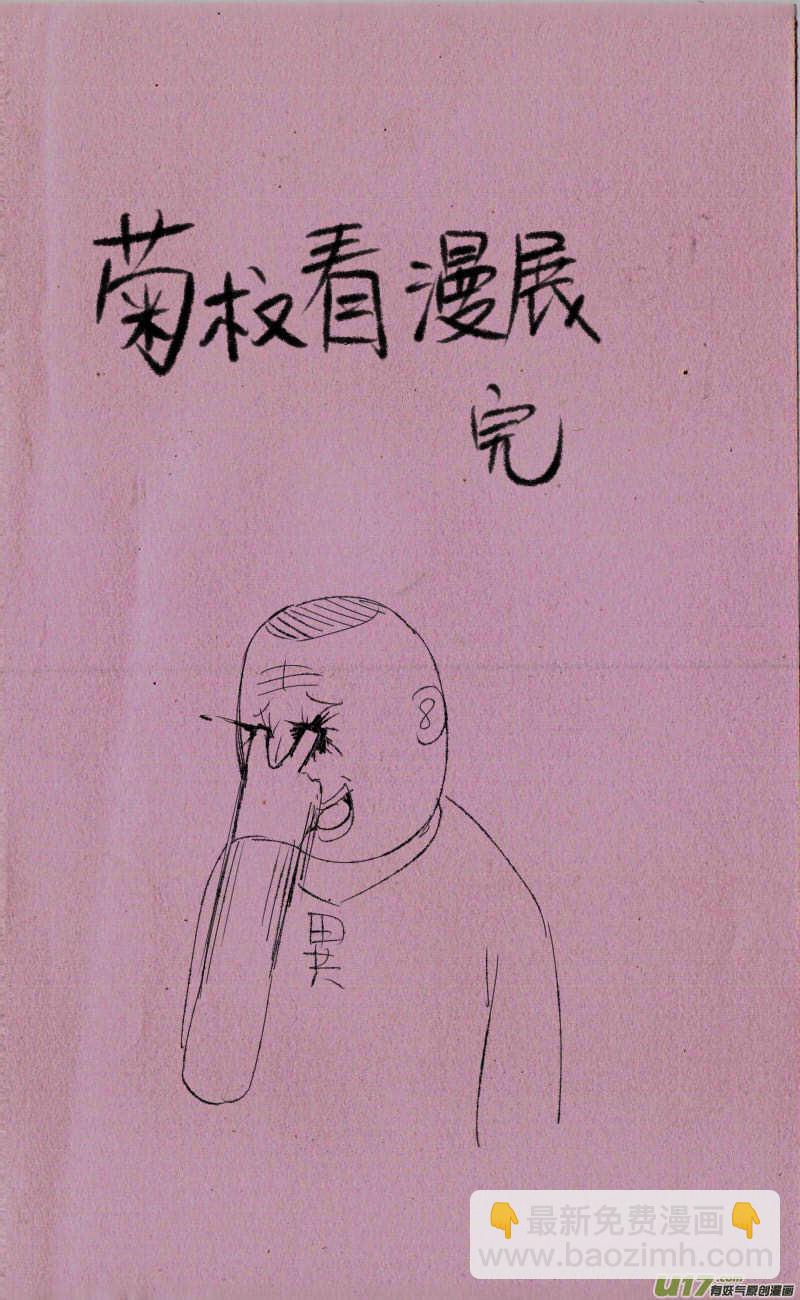 菊叔看漫展
完
異
最新免费漫画
www.baozimh.com
U17.com
有妖气原创漫画